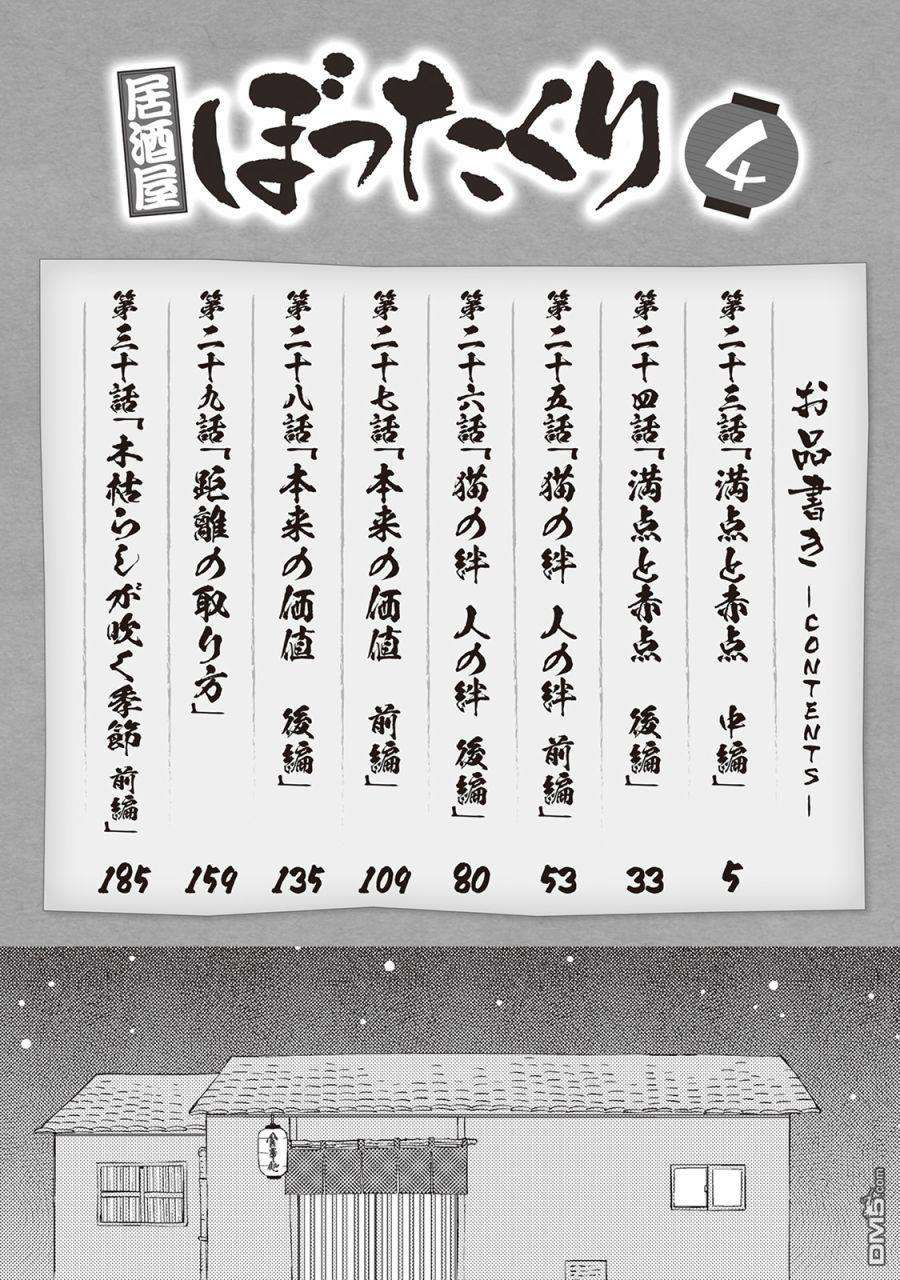 居酒屋
ぼったくり
4
お品書き ―CONTENTS―
第二十三話「満点と赤点 中編」 5
第二十四話「満点と赤点 後編」 33
第二十五話「猫の絆 人の絆 前編」 53
第二十六話「猫の絆 人の絆 後編」 80
第二十七話「本来の価値 前編」 109
第二十八話「本来の価値 後編」 135
第二十九話「距離の取り方」 159
第三十話「木枯らしが吹く季節 前編」 185
食事処
DM5.com